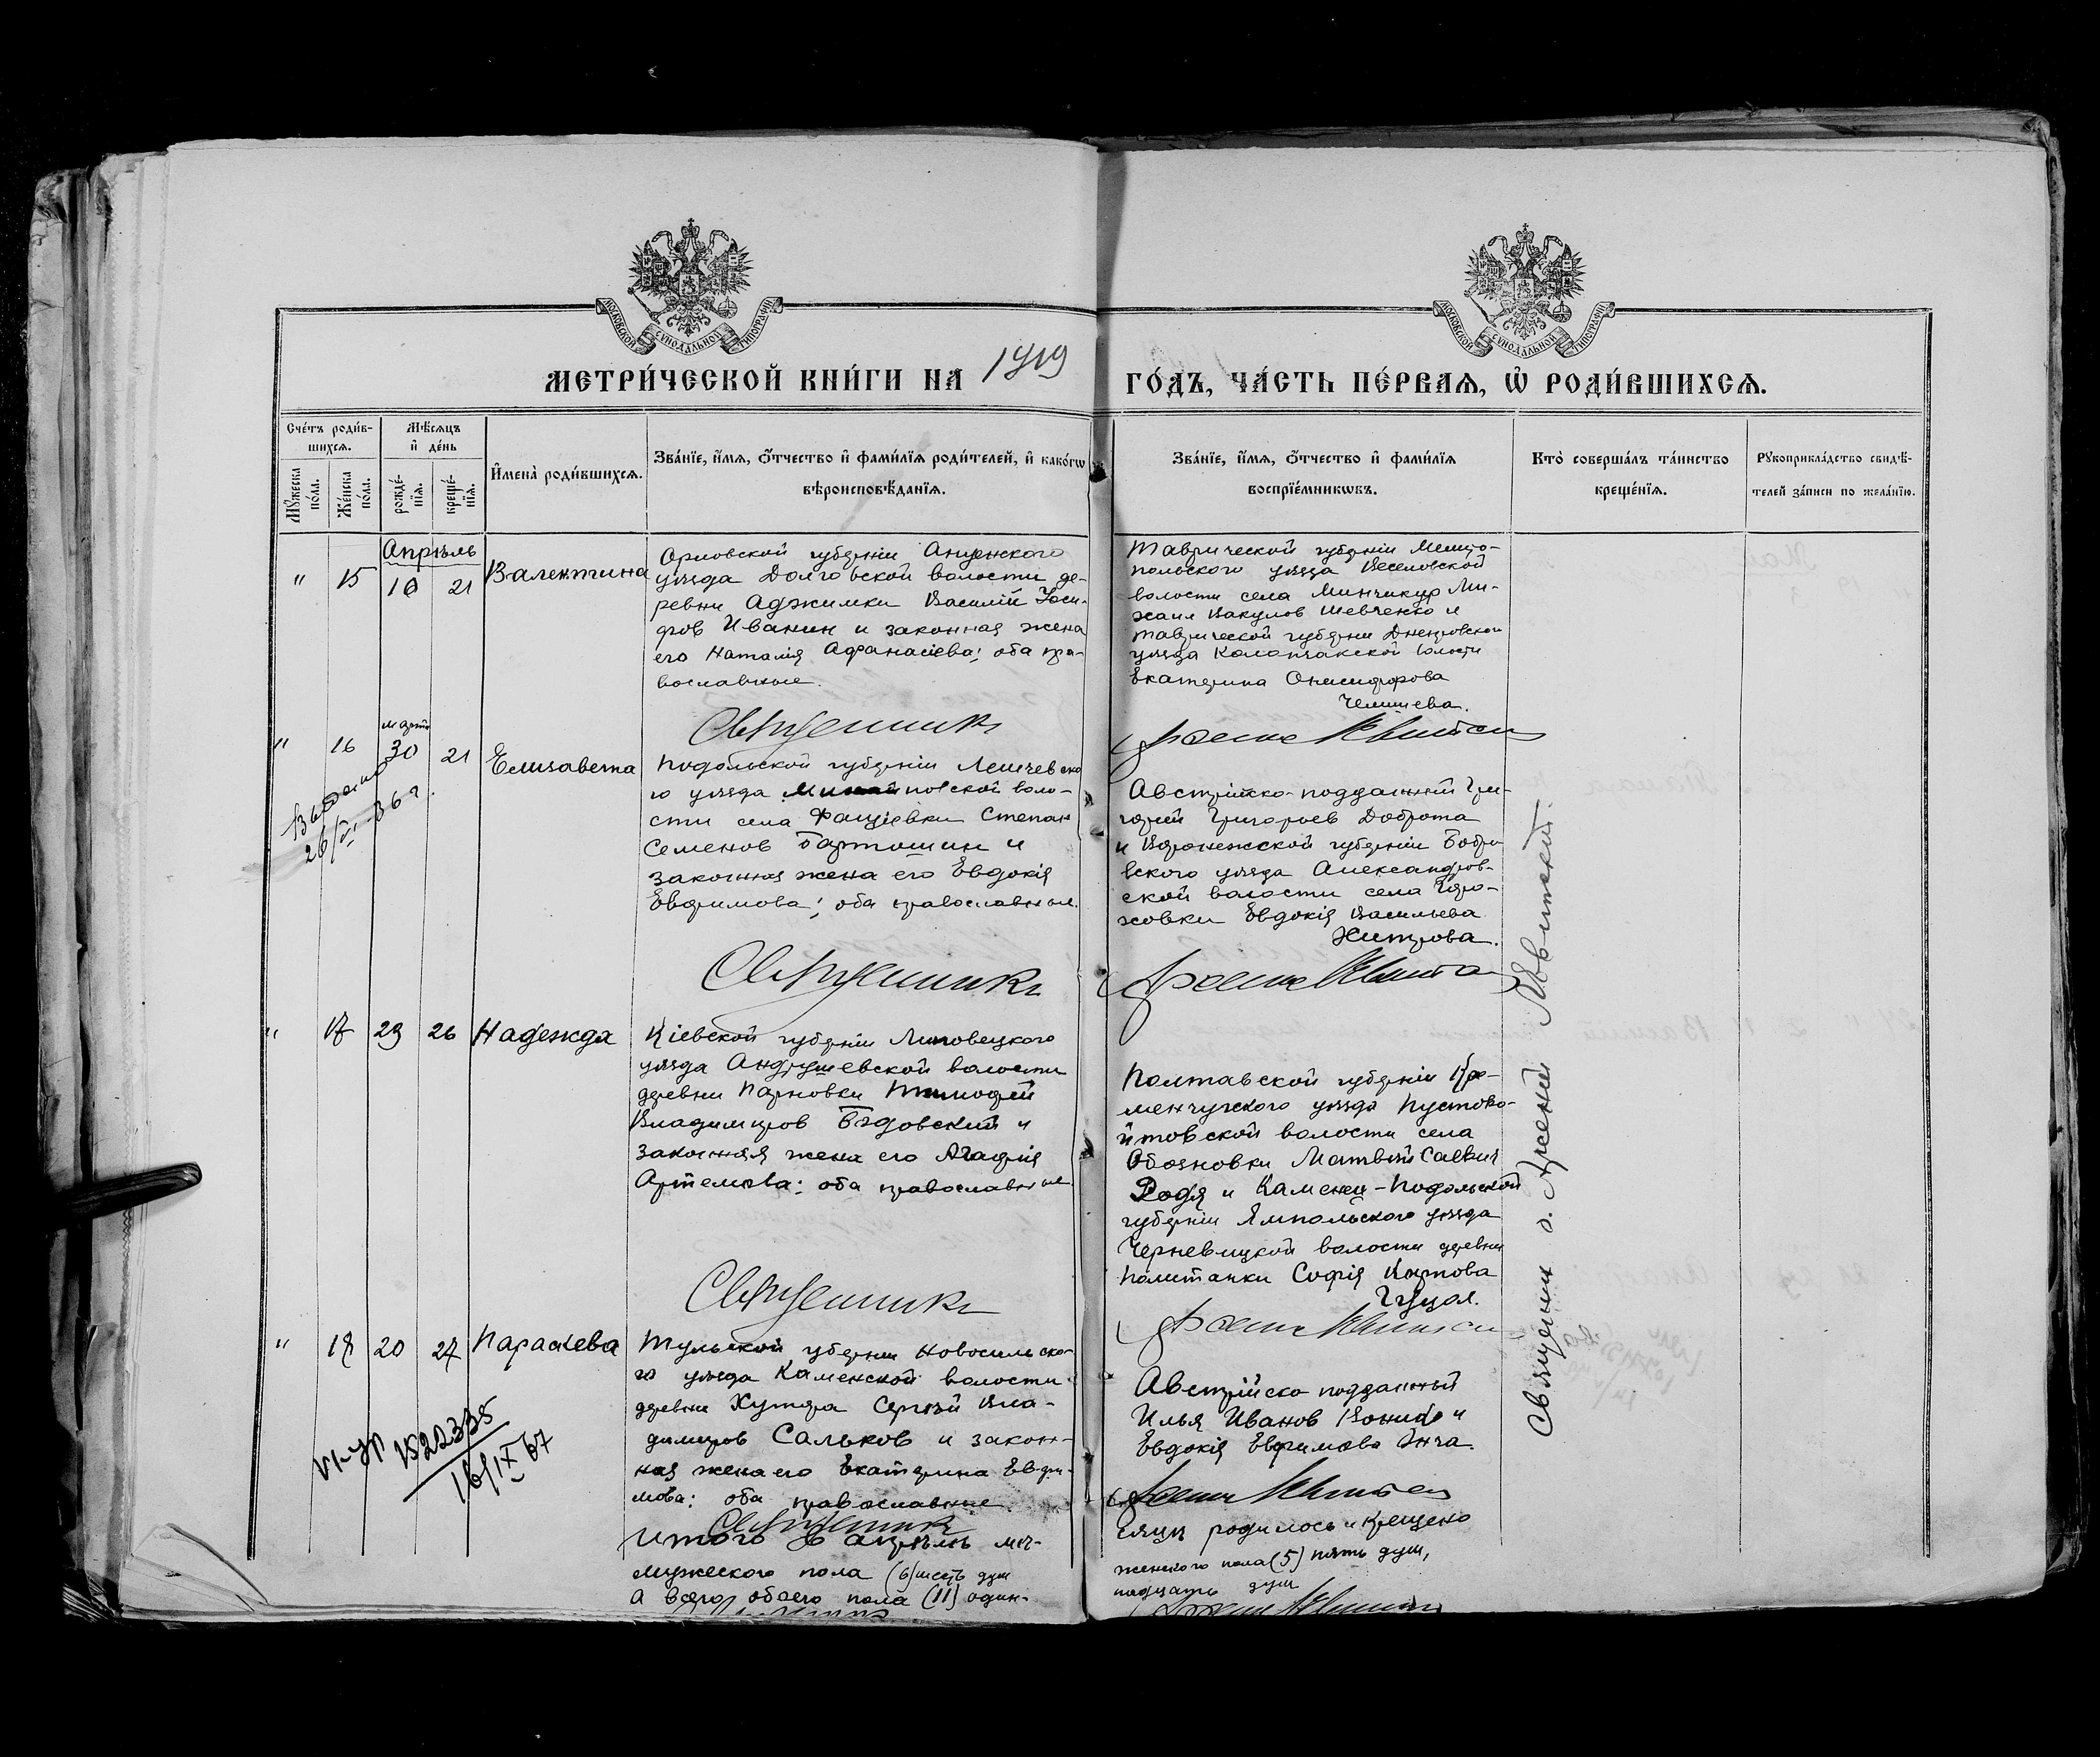 МОСКОВСКОЙ СѴНОДАЛЬНОЙ ТИПОГРАФІИ
МОСКОВСКОЙ СѴНОДАЛЬНОЙ ТИПОГРАФІИ
МЕТРИ́ЧЕСКОЙ КНИ́ГИ НА 1919 ГО́ДЪ, ЧА́СТЬ ПЕ́РВАѦ, Ѡ҆ РОДИ́ВШИХСѦ.
Сче́тъ роди́в-
шихсѧ.
Мꙋ́жеска
по́ла.
Же́нска
по́ла.
Мѣ́сѧцъ
и҆ де́нь
рожде́-
нїѧ.
креще́-
нїѧ.
И҆мена̀ роди́вшихсѧ.
Зва́нїе, и҆́мѧ, ѻ҆́тчество и҆ фами́лїѧ роди́телей, и҆ како́гѡ
вѣроисповѣ́данїѧ.
Зва́нїе, и҆́мѧ, ѻ҆́тчество и҆ фами́лїѧ
воспрїе́мникѡвъ.
Кто̀ соверша́лъ та́инство
креще́нїѧ.
Рꙋкоприкла́дство свидѣ́-
телей за́писи по жела́нїю.
Апрѣль
" 15 16 21 Валентина
Орловской губерніи
уѣзда Долговской волости де-
ревни Аджимки Василій Іоси-
фов Иванин и законная жена
его Наталія Афанасіева; оба пра-
вославные.
Таврической губерніи Мелито-
польского уѣзда Веселовской
волости села Минчикур Ми-
хаил Вакулов Шевченко и
Таврической губерни Днепровского
уѣзда Каланчакской волости
Екатерина Онисифорова
Челишева.
Священникъ
марта
" 16 30 21 Елизавета
Выдано
26/VI-36 г.
Подольской губерніи Летичевско
го уѣзда повской воло-
сти села Фащіевки Степан
Семенов Бартошин и
законная жена его Евдокія
Евфимова; оба православные.
Австрійско-подданный Гри-
горій Григорьев Доброта
и Воронежской губерніи Бобро
вского уѣзда Александров-
ской волости села Горо-
ховки Евдокія Васильева
Хитрова.
Священникъ
" 17 23 26 Надежда
Кіевской губерніи Липовецкого
уѣзда Андрушевской волости
деревни Парновки Тимофей
Владимиров Бѣдовский и
законная жена его Агафия
Артемова; оба православные
Полтавской губерніи Кре-
менчугского уѣзда Пустово-
йтовской волости села
Обозновки Матвѣй Саввич
Родя и Каменец-Подольской
губерніи Ямпольского уѣзда
Черневицкой волости деревни
Политанки Софія Карпова
Гуцол.
Священникъ
" 18 20 27 Параскева
152235
16/IX 67
Тульской губернии Новосильско-
го уѣзда Каменской волости
деревни Хутора Сергѣй Вла-
димиров Сальков и закон-
ная жена его Екатерина Евфи-
мова; оба православные
Австрійско подданный
Илья Иванов и
Евдокія Евфимова
Священникъ
Итого в апрѣлѣ мѣ-
сяцѣ родилось и крещено
мужеского пола (6) шесть душ
женского пола (5) пять душ,
а всего обоего пола (11) один-
надцать душ
Священник о. Арсений Квитский.